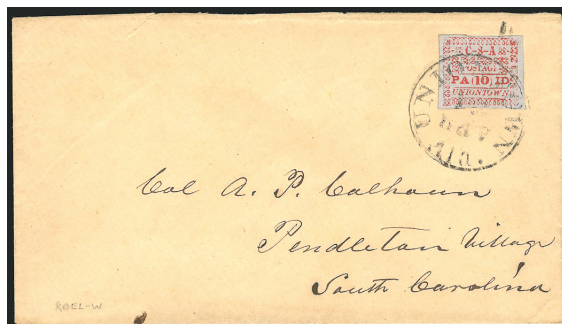 C-S-A
POSTAGE
PA(10)ID
UNIONTOWN
UNIONTOWN
Ala.
Col A. P. Calhoun
Pendleton Village
South Carolina
ROEL-W